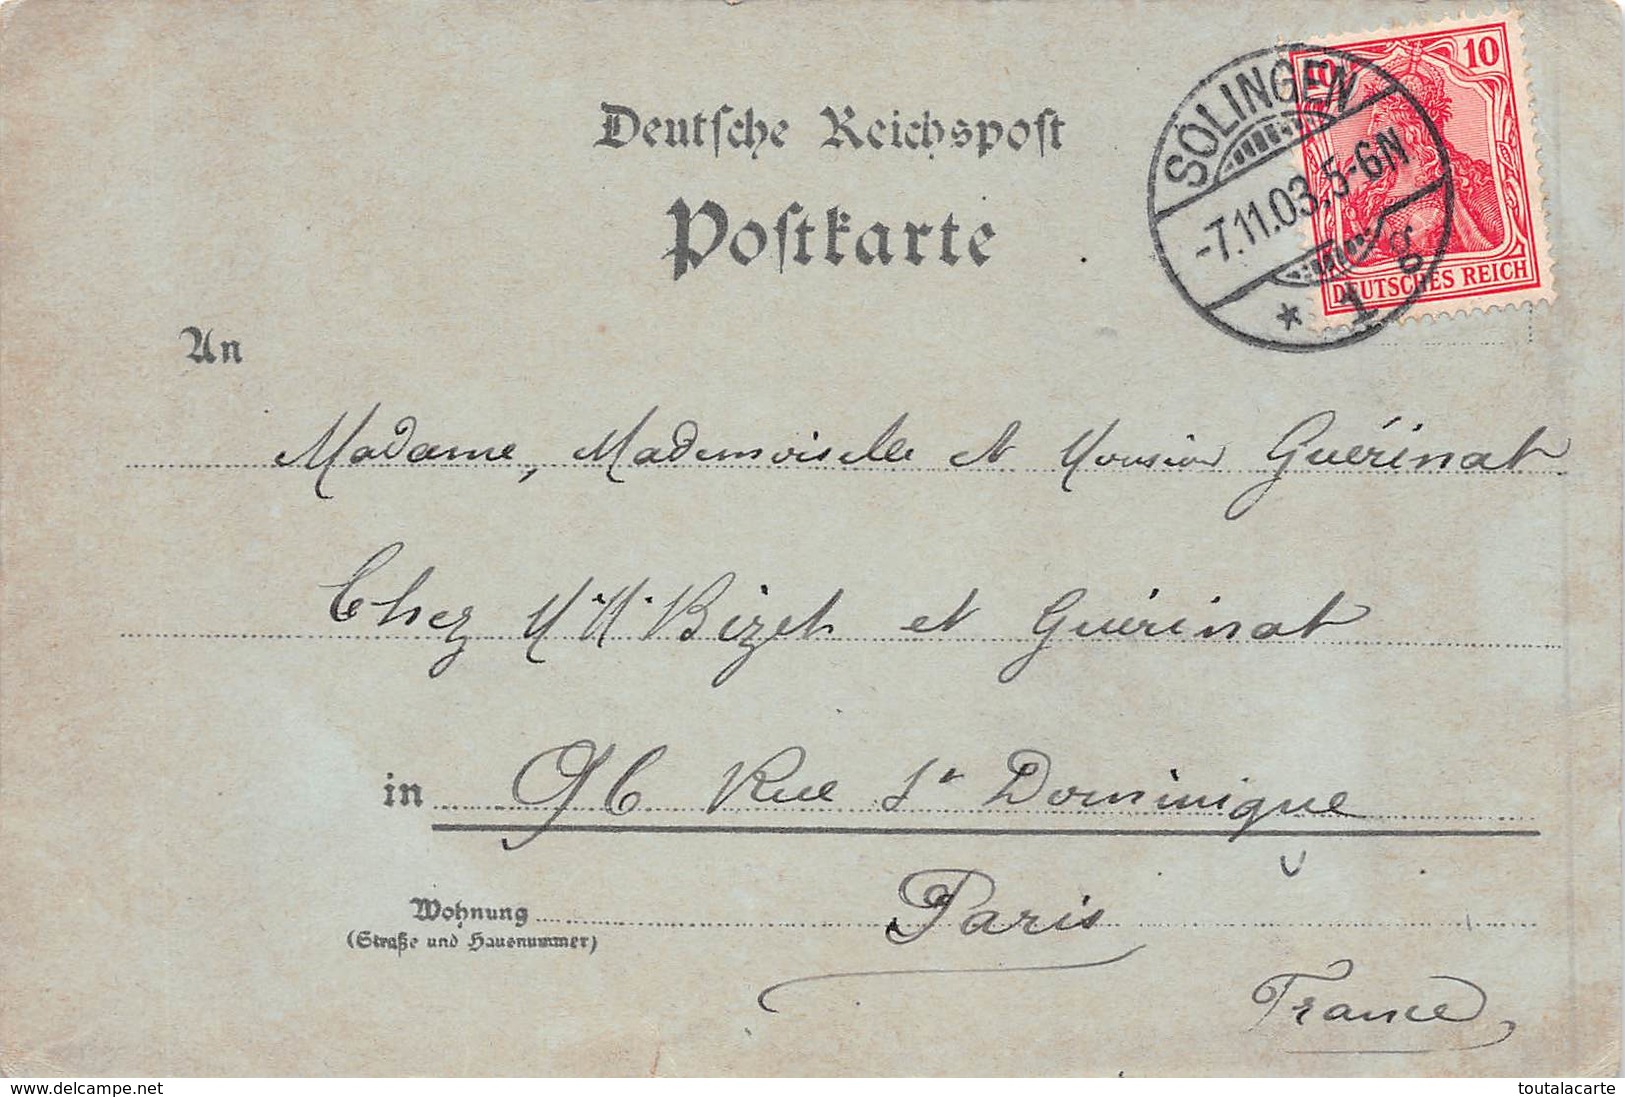 Deutsche Reichspost
Postkarte
10 10
DEUTSCHES REICH
SOLINGEN
-7.11.03.5-6N
* 1 g
An
Madame, Mademoiselle et Monsieur Guérinat
Chez M.M. Bizet et Guérinat
in 96 Rue St Dominique
Paris
Wohnung
(Straße und Hausnummer)
France
www.delcampe.net
toutalacarte